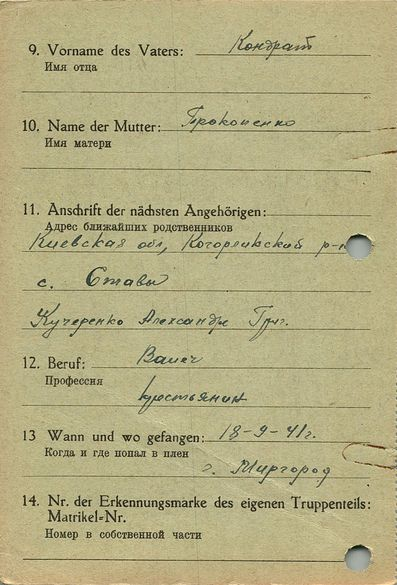 9. Vorname des Vaters: Кондрат
Имя отца
10. Name der Mutter: Прокопенко
Имя матери
11. Anschrift der nächsten Angehörigen:
Адрес ближайших родственников
Киевская обл, Когорликский р-н
с. Ставы
Кучеренко Александре Григ.
12. Beruf:
Профессия
крестьянин
13 Wann und wo gefangen: 18-9-41г.
Когда и где попал в плен
г. Миргород
14. Nr. der Erkennungsmarke des eigenen Truppenteils:
Matrikel=Nr.
Номер в собственной части